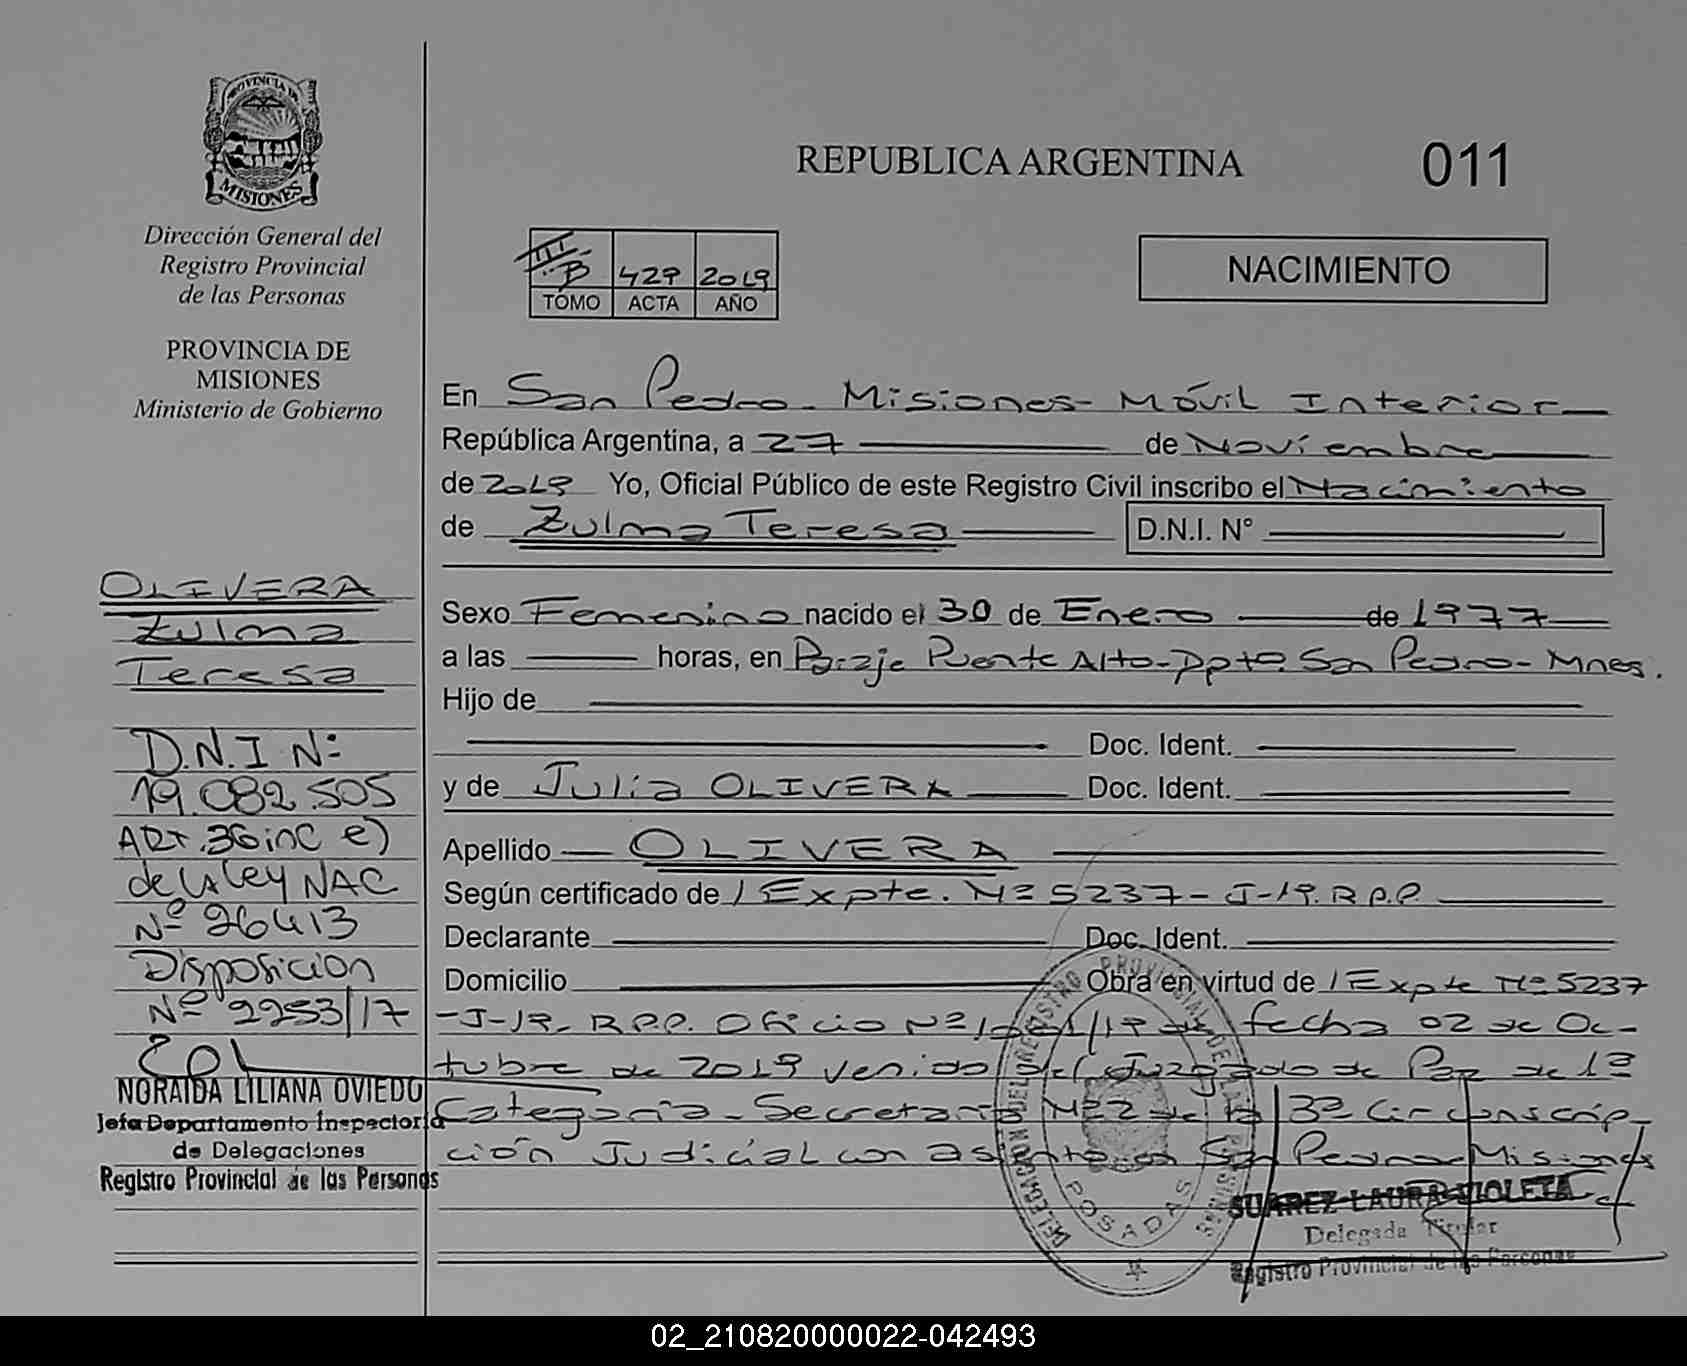 PROVINCIA DE
MISIONES
Dirección General del
Registro Provincial
de las Personas
PROVINCIA DE
MISIONES
Ministerio de Gobierno
OLIVERA
Zulma
Teresa
D.N.I Nº
19.082.505
ART.36 inc e)
de la Ley NAC
Nº 26413
Disposicion
Nº 2253/17
NORAIDA LILIANA OVIEDO
Jefa Departamento Inspectoria
de Delegaciones
Registro Provincial de las Personas
REPUBLICA ARGENTINA
011
III B 429 2019
TOMO ACTA AÑO
NACIMIENTO
En San Pedro - Misiones - Móvil Interior
República Argentina, a 27 de Noviembre
de 2019 Yo, Oficial Público de este Registro Civil inscribo el Nacimiento
de Zulma Teresa D.N.I. N°
Sexo Femenino nacido el 30 de Enero de 1977
a las horas, en Paraje Puente Alto - Dpto. San Pedro - Mnes.
Hijo de
Doc. Ident.
y de Julia OLIVERA Doc. Ident.
Apellido OLIVERA
Según certificado de / Expte. Nº 5237 - J-19. R.P.P.
Declarante Doc. Ident.
Domicilio Obra en virtud de / Expte Nº 5237
-J-19- R.P.P. Oficio Nº /19 de fecha 02 de Oc-
tubre de 2019 venido del Juzgado de Paz de 1ª
Categoría - Secretaria Nº 2 de la 3ª Circunscrip-
ción Judicial con asiento en San Pedro - Misiones
DELEGACION DEL REGISTRO PROVINCIAL DE LAS
POSADAS
SUAREZ LAURA VIOLETA
Delegada Titular
Registro Provincial de las Personas
02_210820000022-042493